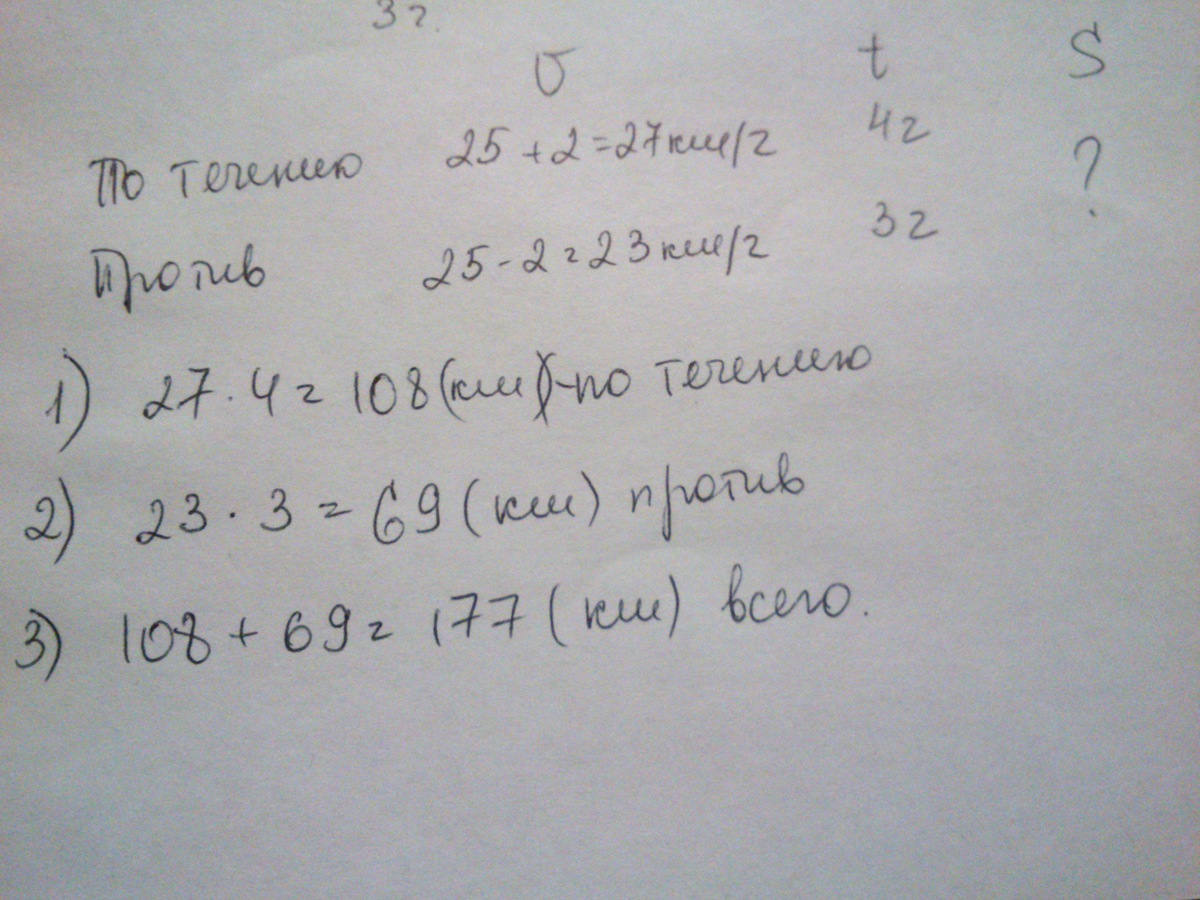 3г.
υ t S
По течению 25 + 2 = 27 км/г 4г ?
Против 25 - 2 = 23 км/г 3г
1) 27 · 4 = 108 (км) - по течению
2) 23 · 3 = 69 (км) против
3) 108 + 69 = 177 (км) всего.